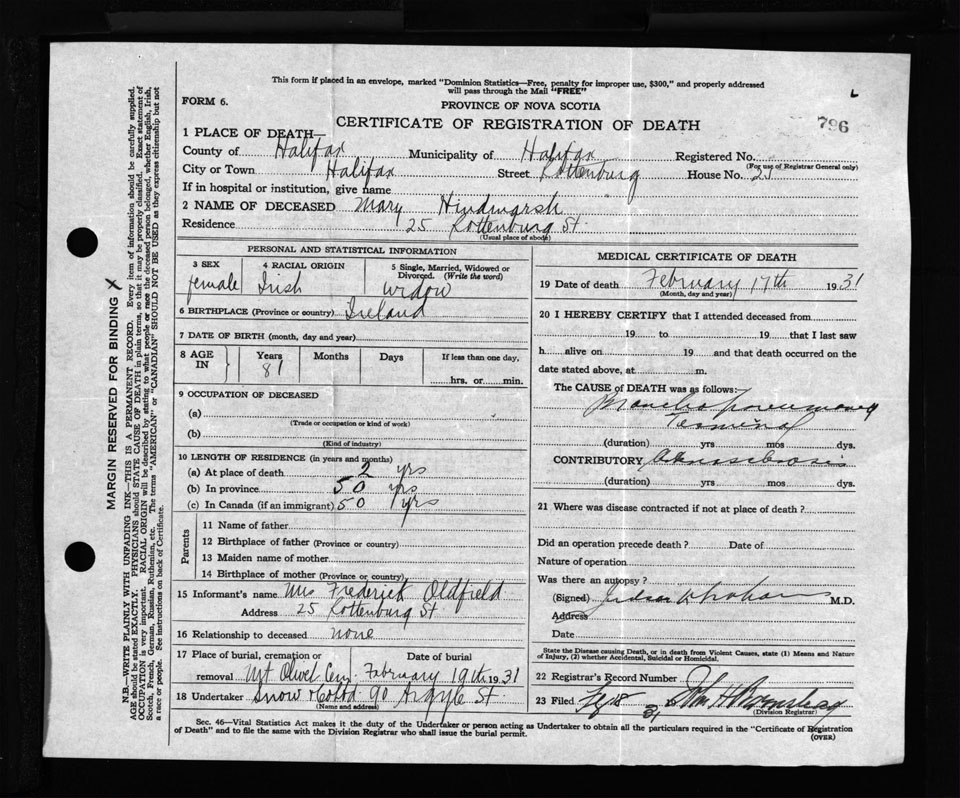 This form if placed in an envelope, marked "Dominion Statistics—Free, penalty for improper use, $300," and properly addressed
will pass through the Mail "FREE"
FORM 6.
PROVINCE OF NOVA SCOTIA
796
CERTIFICATE OF REGISTRATION OF DEATH
1 PLACE OF DEATH—
County of Halifax Municipality of Halifax Registered No.
(For use of Registrar General only)
City or Town Halifax Street Rottenburg House No. 25
If in hospital or institution, give name
2 NAME OF DECEASED Mary Hindmarsh
Residence 25 Rottenburg St.
(Usual place of abode)
PERSONAL AND STATISTICAL INFORMATION
3 SEX 4 RACIAL ORIGIN 5 Single, Married, Widowed or
Divorced. (Write the word)
female Irish widow
6 BIRTHPLACE (Province or country) Ireland
7 DATE OF BIRTH (month, day and year)
8 AGE IN Years Months Days If less than one day,
81
hrs. or min.
9 OCCUPATION OF DECEASED
(a)
(Trade or occupation or kind of work)
(b)
(Kind of industry)
10 LENGTH OF RESIDENCE (in years and months)
(a) At place of death 2 yrs
(b) In province 50 yrs
(c) In Canada (if an immigrant) 50 yrs
Parents
11 Name of father
12 Birthplace of father (Province or country)
13 Maiden name of mother
14 Birthplace of mother (Province or country)
15 Informant's name Mrs Frederick Oldfield
Address 25 Rottenburg St
16 Relationship to deceased none
17 Place of burial, cremation or Date of burial
removal Mt Olivet Cem February 19th 1931
18 Undertaker Snow & Co Ltd 90 Argyle St
(Name and address)
MEDICAL CERTIFICATE OF DEATH
19 Date of death February 17th 1931
(Month, day and year)
20 I HEREBY CERTIFY that I attended deceased from
19 to 19 that I last saw
h alive on 19 and that death occurred on the
date stated above, at m.
The CAUSE of DEATH was as follows:
Bronchopneumonia
Terminal
(duration) yrs mos dys.
CONTRIBUTORY
(duration) yrs mos dys.
21 Where was disease contracted if not at place of death?
Did an operation precede death? Date of
Nature of operation
Was there an autopsy?
(Signed) Judson M.D.
Address
Date
State the Disease causing Death, or in death from Violent Causes, state (1) Means and Nature
of Injury, (2) whether Accidental, Suicidal or Homicidal.
22 Registrar's Record Number
23 Filed 18 31
(Division Registrar)
Sec. 46—Vital Statistics Act makes it the duty of the Undertaker or person acting as Undertaker to obtain all the particulars required in the "Certificate of Registration
of Death" and to file the same with the Division Registrar who shall issue the burial permit.
(OVER)
MARGIN RESERVED FOR BINDING X
N.B.—WRITE PLAINLY WITH UNFADING INK—THIS IS A PERMANENT RECORD. Every item of information should be carefully supplied.
AGE should be stated EXACTLY. PHYSICIANS should STATE CAUSE OF DEATH in plain terms, so that it may be properly classified. Exact statement of
OCCUPATION is very important. RACIAL ORIGIN will be described by stating to what people or race the deceased person belonged, whether English, Irish,
Scotch, French, German, Russian, Ruthenian, etc. The terms "AMERICAN" or "CANADIAN" SHOULD NOT BE USED as they express citizenship but not
a race or people. See instructions on back of Certificate.